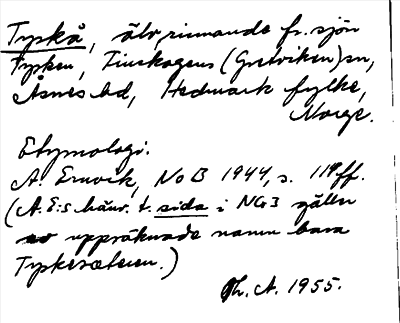 Tyskå, älv rinnande fr. sjön
Tysken, Tinskogens (Gretviken) sn,
Åsnes hd, Hedmark fylke,
Norge.
Etymologi.
A. Ernvik, NoB 1944, s. 119 ff.
(A. E:s hänv. t. sida i NG 3 gäller
uppräknade namn bara
Tyskesæteren.)
Th. A. 1955.